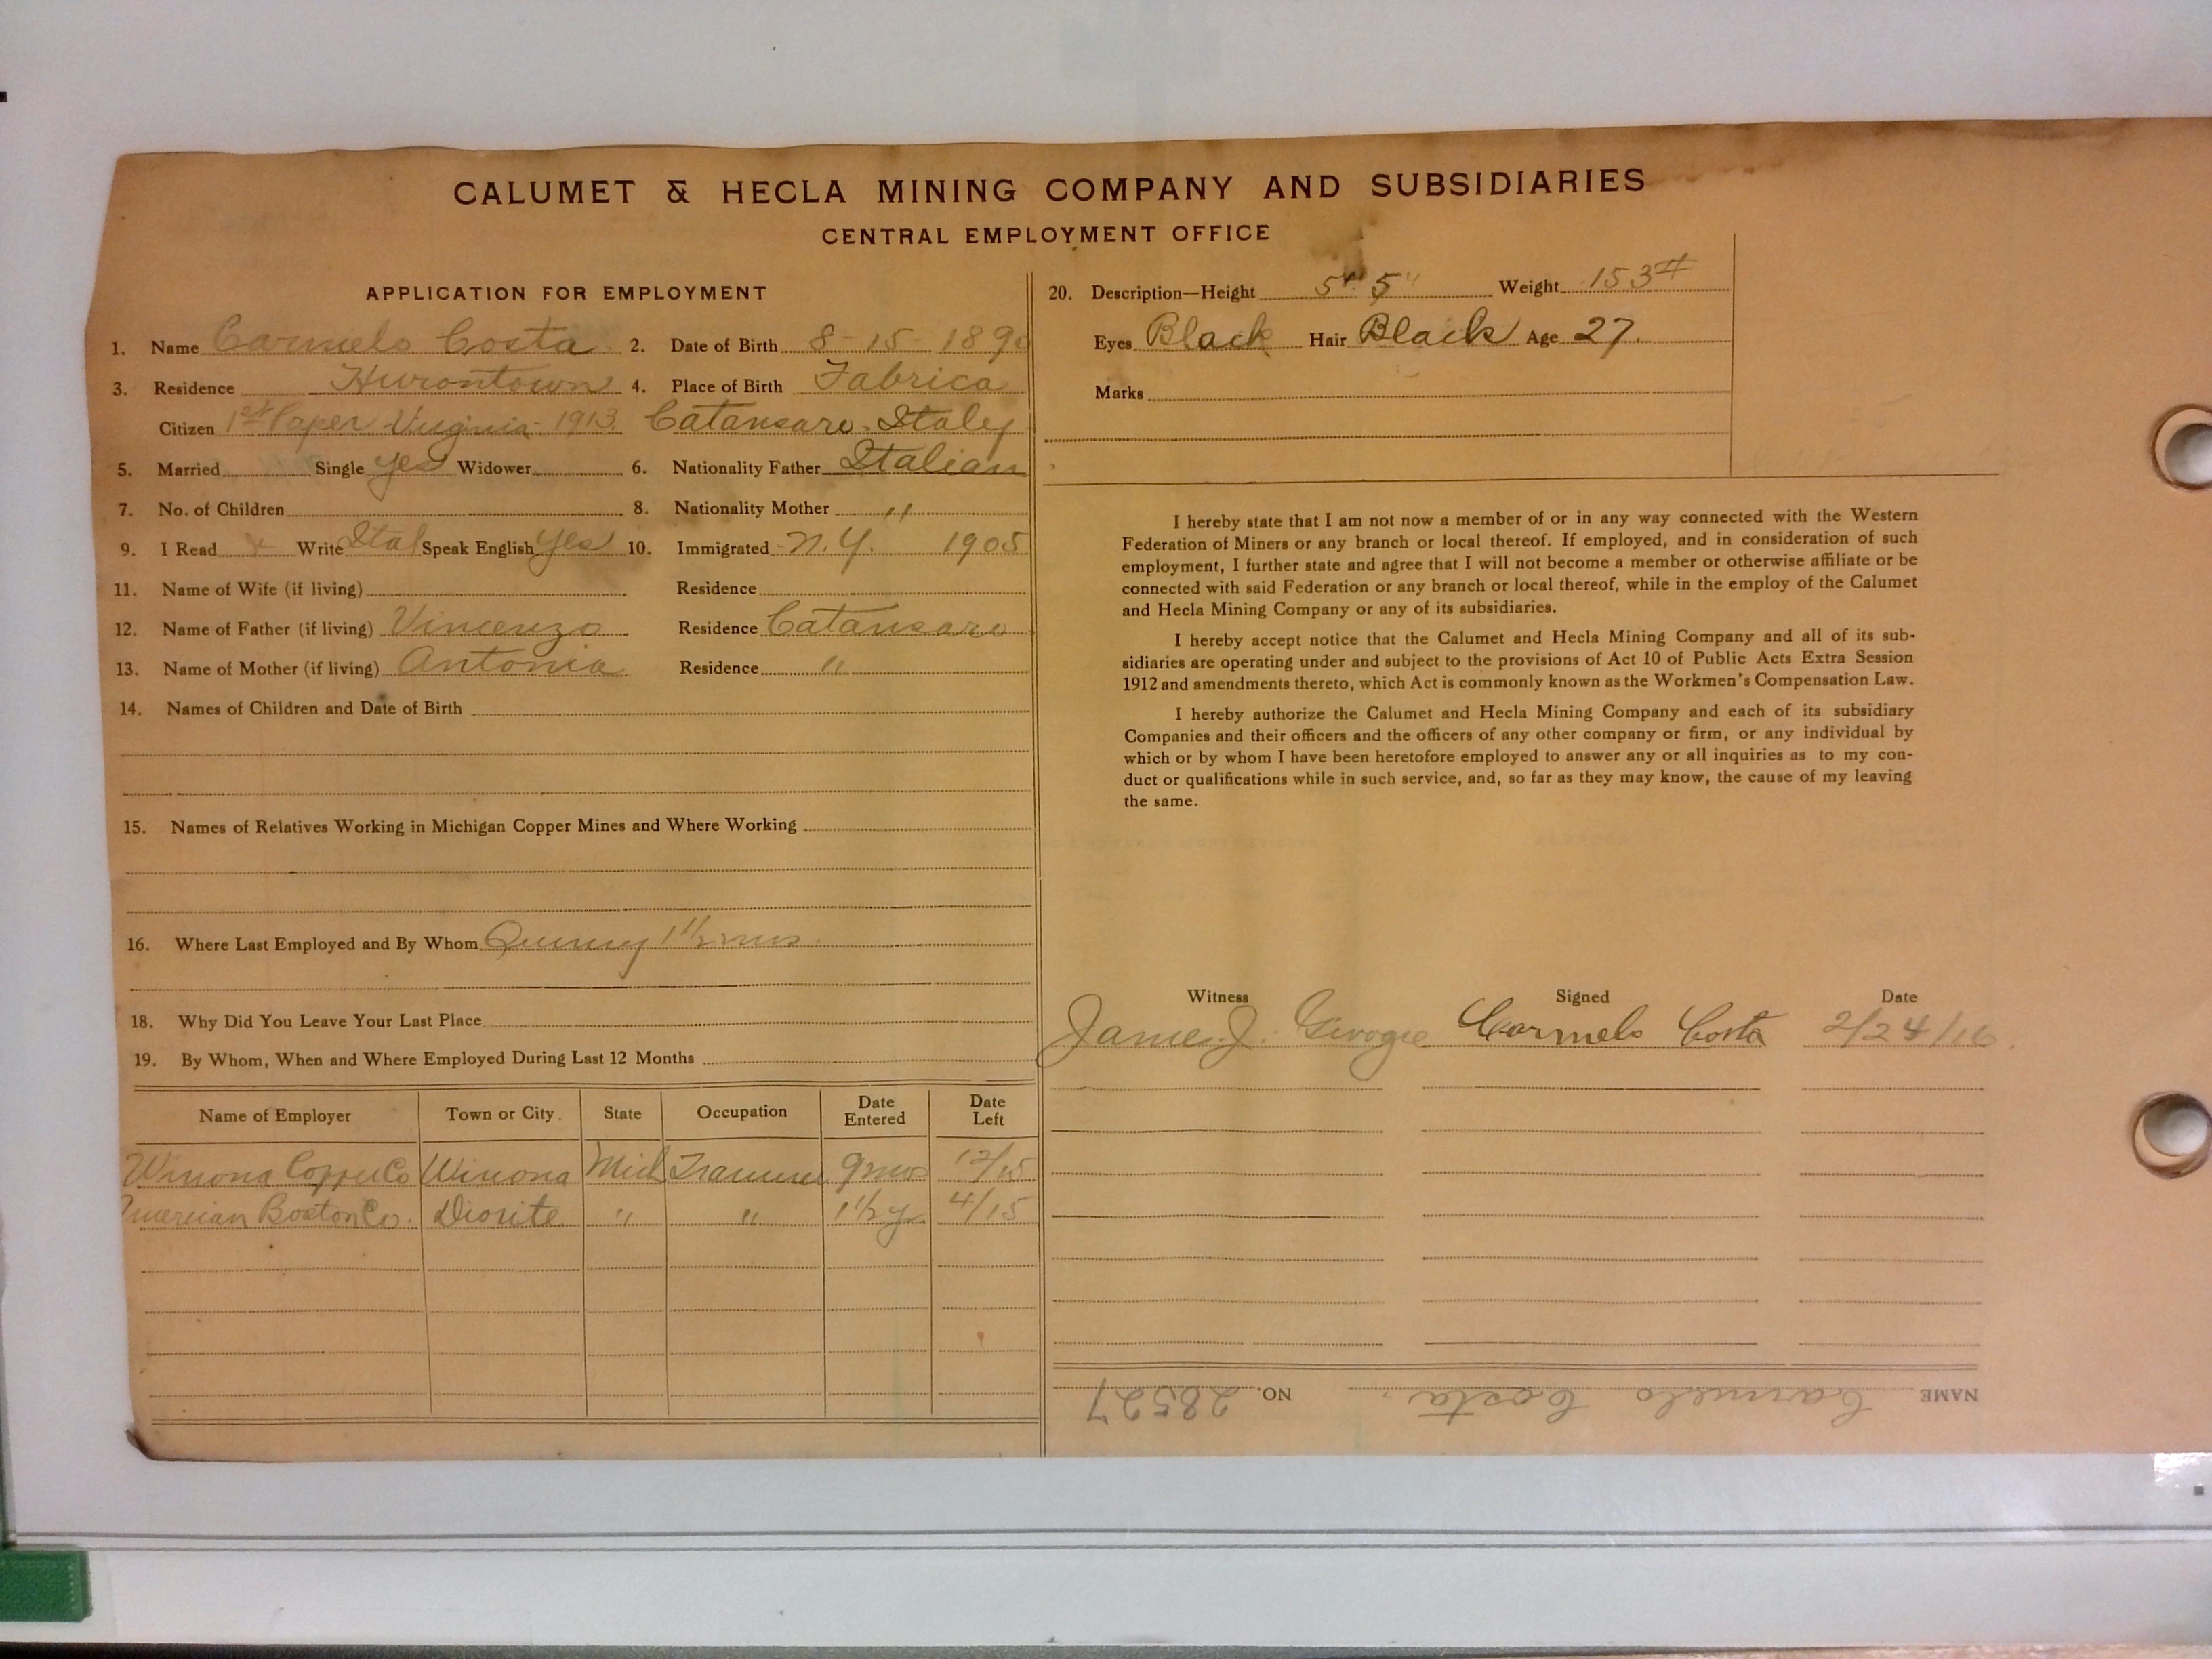 CALUMET & HECLA MINING COMPANY AND SUBSIDIARIES
CENTRAL EMPLOYMENT OFFICE
APPLICATION FOR EMPLOYMENT
1. Name Carmelo Costa 2. Date of Birth 8-15-1890
3. Residence Hurontown 4. Place of Birth Fabrica
Citizen 1st Paper Virginia 1913 Catansaro. Italy
5. Married Single yes Widower 6. Nationality Father Italian
7. No. of Children 8. Nationality Mother "
9. I Read Write Ital Speak English yes 10. Immigrated N.Y. 1905
11. Name of Wife (if living) Residence
12. Name of Father (if living) Vincenzo Residence Catansaro
13. Name of Mother (if living) Antonia Residence "
14. Names of Children and Date of Birth
15. Names of Relatives Working in Michigan Copper Mines and Where Working
16. Where Last Employed and By Whom Quincy 1 1/2 mos.
18. Why Did You Leave Your Last Place
19. By Whom, When and Where Employed During Last 12 Months
Name of Employer Town or City. State Occupation Date Entered Date Left
Winona Copper Co Winona Mich Trammer 9 mos 12/15
American Boston Co. Diorite " " 1 1/2 y 4/15
20. Description—Height 5' 5" Weight 153#
Eyes Black Hair Black Age 27.
Marks
I hereby state that I am not now a member of or in any way connected with the Western
Federation of Miners or any branch or local thereof. If employed, and in consideration of such
employment, I further state and agree that I will not become a member or otherwise affiliate or be
connected with said Federation or any branch or local thereof, while in the employ of the Calumet
and Hecla Mining Company or any of its subsidiaries.
I hereby accept notice that the Calumet and Hecla Mining Company and all of its sub-
sidiaries are operating under and subject to the provisions of Act 10 of Public Acts Extra Session
1912 and amendments thereto, which Act is commonly known as the Workmen's Compensation Law.
I hereby authorize the Calumet and Hecla Mining Company and each of its subsidiary
Companies and their officers and the officers of any other company or firm, or any individual by
which or by whom I have been heretofore employed to answer any or all inquiries as to my con-
duct or qualifications while in such service, and, so far as they may know, the cause of my leaving
the same.
Witness Signed Date
James J. Carmelo Costa 2/24/16
NAME Carmelo Costa. NO. 28527